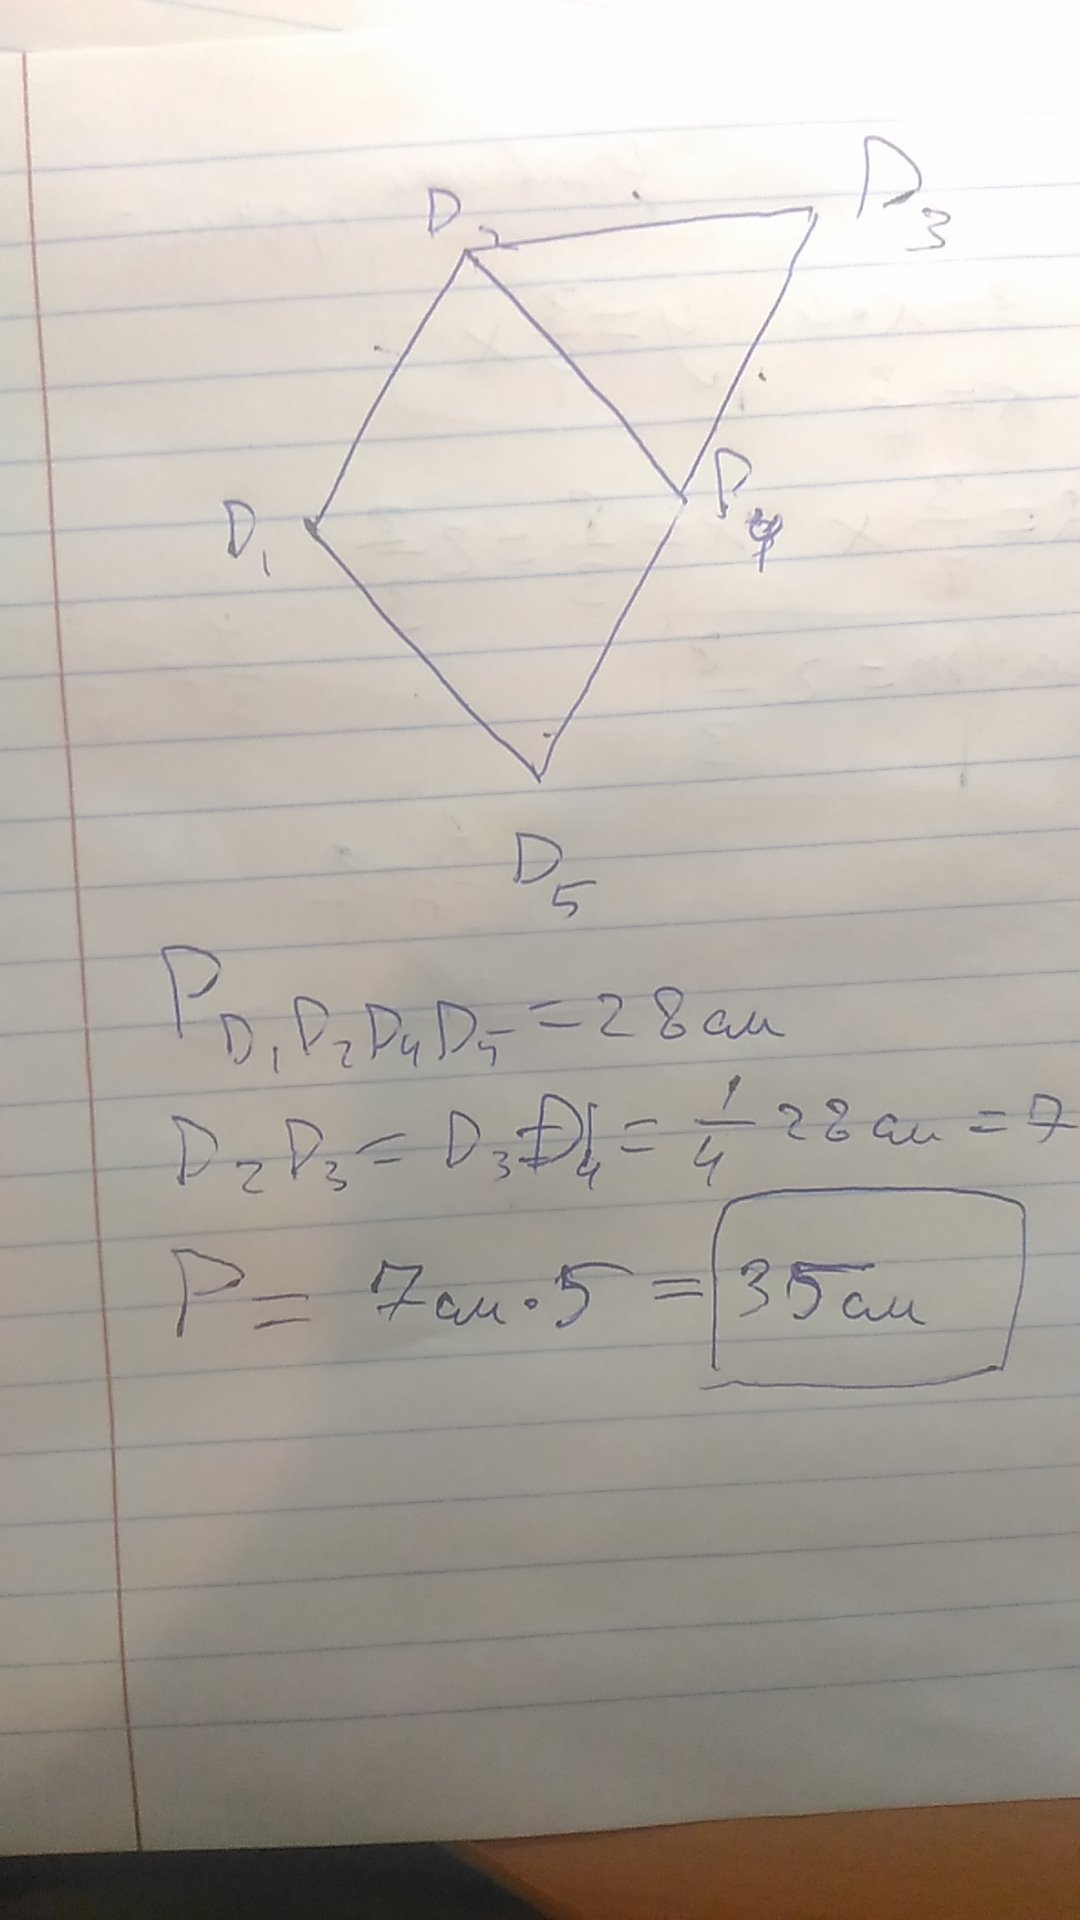 D₂
D₃
D₁
D₄
D₅
P D₁D₂D₄D₅ = 28 см
D₂D₃ = D₃D₄ = 1/4 28 см = 7
P = 7 см · 5 = 35 см